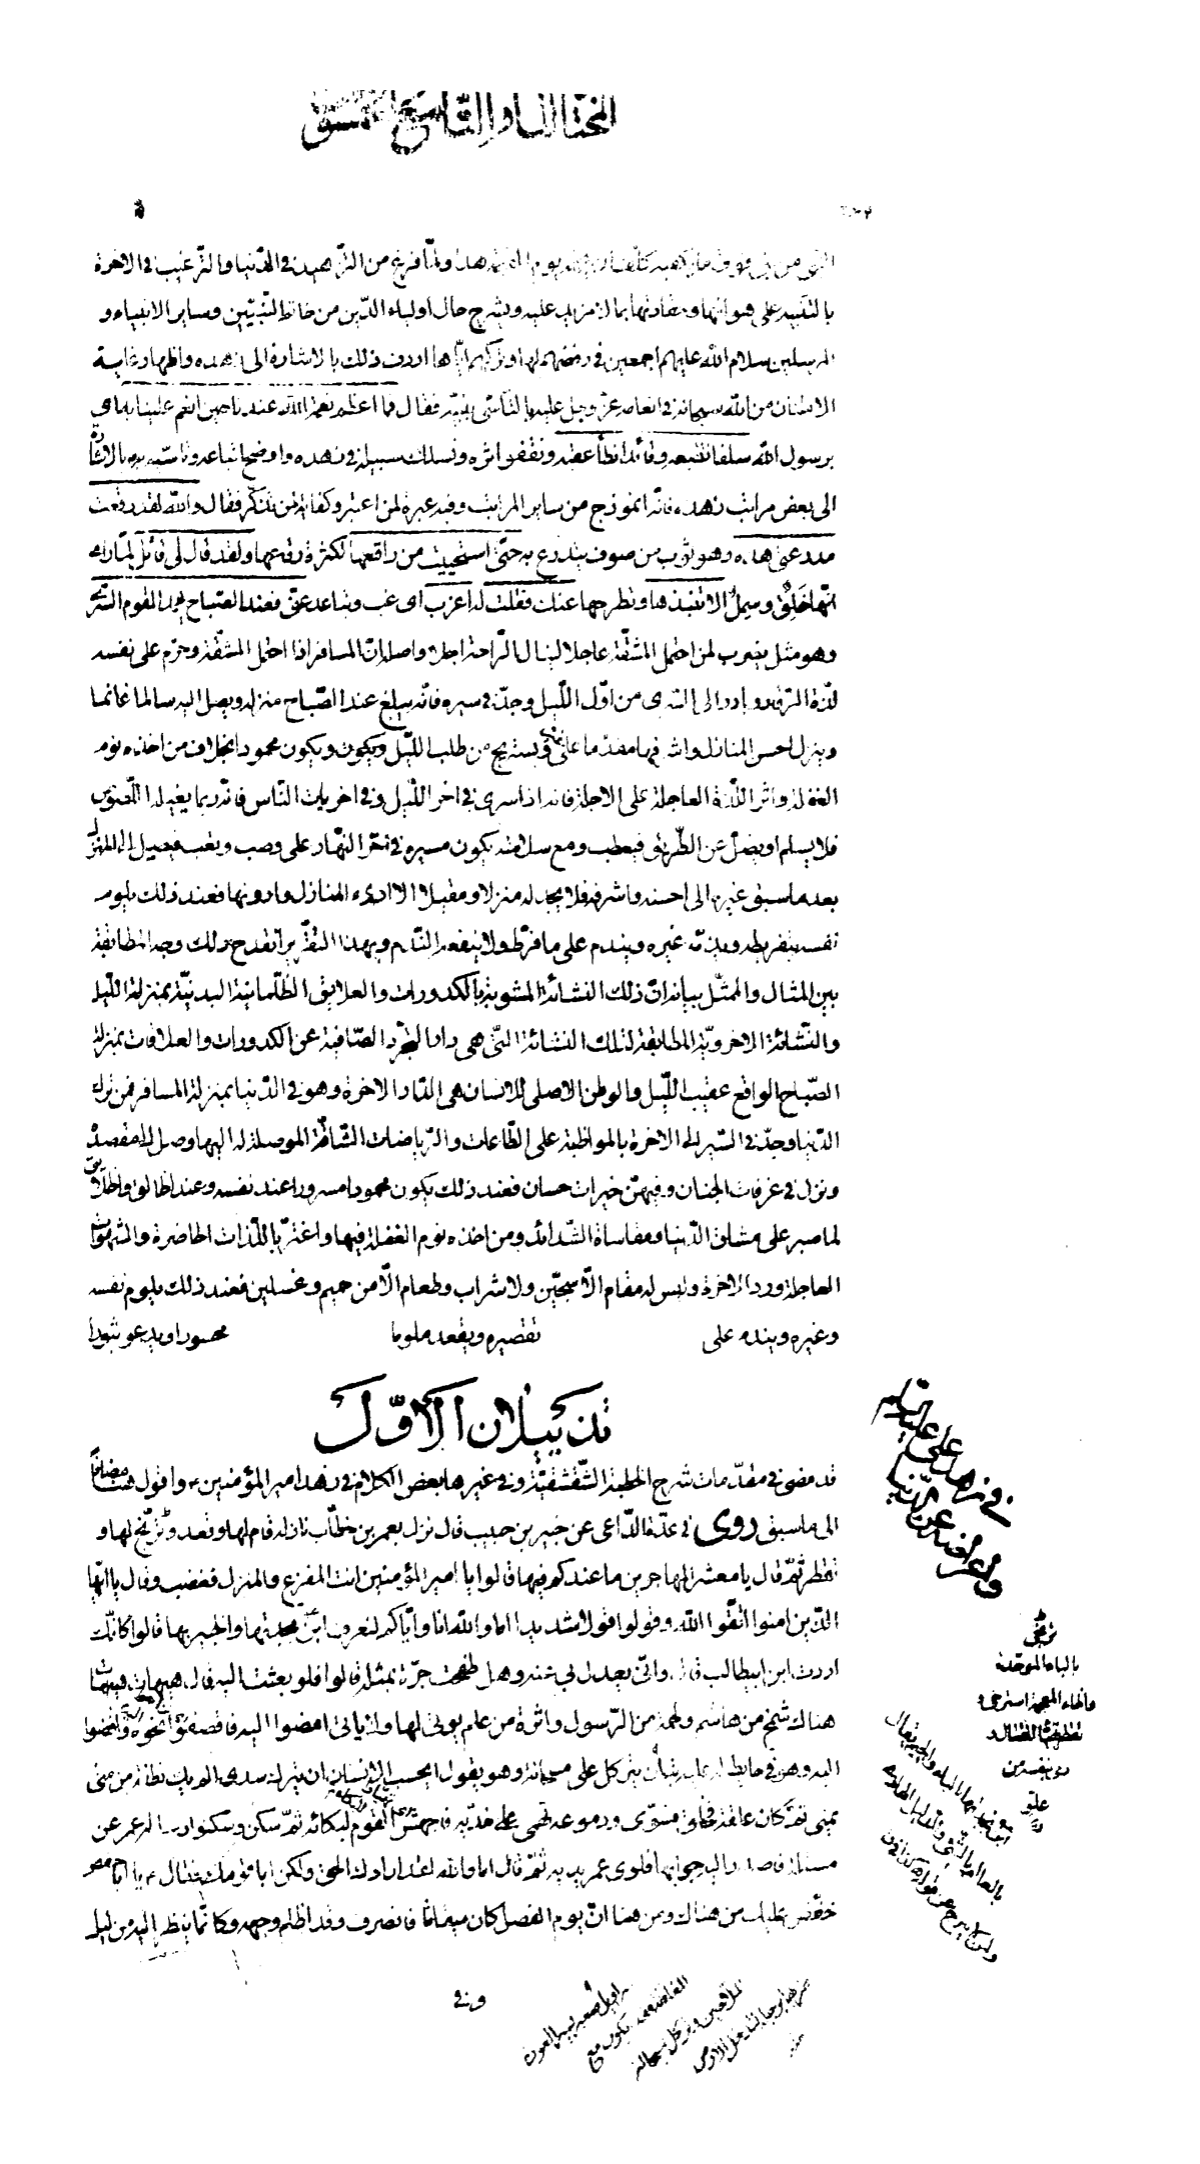 المختار المأة والتاسع والخمسون
من فوق ما نزهت كلفت به يوم القيمة هذا ولمّا فرغ من التزهيد في الدّنيا والترغيب في الاخرة
بالتنبيه على هوانها و حقارتها بما لا مزيد عليه وبشرح حال اولياء الدّين من خاتم النّبيّين وساير الانبياء و
المرسلين سلام الله عليهم اجمعين في رفضهم لها وتركهم ايّاها اردف ذلك بالاشارة الى زهده واظهار غاية
الامتنان من الله سبحانه في انعامه عزّ وجلّ عليه بالتأسّى بنبيّه فقال فما اعظم نعمة الله عندنا حين انعم علينا به اى
برسول الله سلفا نتّبعه وقائدا نطأ عقبه ونقفو اثره ونسلك سبيله في زهده واوضح اتباعه وتاسّيه به بالاشارة
الى بعض مراتب زهده فانّه انموذج من ساير المراتب وفيه عبرة لمن اعتبر وكفاية لمن تذكّر فقال والله لقد رقعت
مدرعتى هذه وهو ثوب من صوف يتدرّع به حتّى استحييت من راقعها لكثرة رقعها ولقد قال لى قائل لمّا راه
انّها خلق وسمل الا تنبذها وتطرحها عنك فقلت له اعزب اى غب وتباعد عنّى فعند الصّباح يحمد القوم السّرى
وهو مثل يضرب لمن احتمل المشقّة عاجلا لينال الرّاحة اجلا واصله انّ المسافر اذا احتمل المشقّة وحرّم على نفسه
لذّة الرّقاد وبادر الى السّرى من اوّل اللّيل وجدّ في سيره فانّه يبلغ عند الصّباح منزله ويصل اليه سالما غانما
وينزل احسن المنازل واشرفها مقدّما على غيره ويستريح من طلب اللّيل ويكون محمودا بخلاف من اخذه نوم
الغفلة واثر اللّذّة العاجلة على الاجلة فانه اذا سرى في اخر اللّيل وفي اخريات النّاس فانّه ربما يغيله اللّصوص
فلا يسلم او يضلّ عن الطّريق فيعطب ومع سلامته يكون مسيره في حرّ النّهار على وصب وتعب فيصل الى المنزل
بعد ما سبق غيره الى احسنه واشرفه فلا يجد له منزلا ومقيلا الا اردء المنازل وادونها فعند ذلك يلوم
نفسه بتفريطه ويذمّه غيره ويندم على ما فرّط ولا ينفعه النّدم وبهذا التقرير انقدح لك وجه المطابقة
بين المثال والممثّل بيانه انّ ذلك النشائة المشوبة بالكدورات والعلايق الظّلمانيّة البدنيّة بمنزلة اللّيل
والنّشائة الاخرويّة المطابقة لتلك النشائة التّى هى دار التجرّد الصّافية عن الكدورات والعلاقات بمنزلة
الصّباح الواقع عقيب اللّيل والوطن الاصلى للانسان هى الدّار الاخرة وهو في الدّنيا بمنزلة المسافر فمن ترك
الدّنيا وجدّ في السّير الى الاخرة بالمواظبة على الطّاعات والرّياضات الشّاقّة الموصلة له اليها وصل الى مقصده
ونزل في غرفات الجنان وفيهنّ خيرات حسان فعند ذلك يكون محمودا مسرورا عند نفسه وعند الخالق والخلايق
لما صبر على مشاقّ الدّنيا ومقاساة الشّدائد ومن اخذه نوم الغفلة فيها واغترّ باللّذات الحاضرة والشهوات
العاجلة ورد الاخرة وليس له مقام الّا سجّين ولا شراب وطعام الّا من حميم وغسلين فعند ذلك يلوم نفسه
وغيره ويندم على تقصيره ويقعد ملوما محسورا ويدعو ثبورا
تذييلان الاوّل
قد مضى في مقدّمات شرح الخطبة الشّقشقيّة وفي غيرها بعض الكلام في زهد امير المؤمنين ع واقول هنا مضافا
الى ما سبق روى في عدّة الدّاعى عن جبير بن حبيب قال نزل بعمر بن خطّاب نازلة قام لها وقعد وترنّخ لها و
تقطر ثمّ قال يا معشر المهاجرين ما عندكم فيها قالوا يا امير المؤمنين انت المفزع والمنزل فغضب وقال يا ايّها
الّذين امنوا اتّقوا الله وقولوا قولا سديدا اما والله انا وايّاكم لنعرف ابن بجدتها والخبير بها قالوا كانّك
اردت ابن ابيطالب قال وانّى يعدل بى عنه وهل طفحت حرّة بمثله قالوا فلو بعثت اليه قال هيهات هيهات
هناك شمخ من هاشم ولحمة من الرّسول واثرة من علم يؤتى لها ولا ياتى امضوا اليه فاقصفوا نحوه وافضوا
اليه وهو في حايط له عليه تبّان يتركّل على مسحاته وهو يقول ايحسب الانسان ان يترك سدى الم يك نطفة من منى
يمنى ثم كان علقة فخلق فسوّى ودموعه تهمى على خدّيه فاجهش القوم لبكائه ثمّ سكن وسكنوا وسأله عمر عن
مسئلة فاصدر اليه جوابها فلوى عمر يديه ثمّ قال اما والله لقد ارادك الحق ولكن ابى قومك فقال ع يا ابا حفص
خفّض عليك من هناك ومن هنا انّ يوم الفصل كان ميقاتا فانصرف وقد اظلم وجهه وكانّما ينظر اليه من ليل
وفي
في زهد على عليه السّلام
واعراضه عن الدّنيا
ترنّخ
بالباء الموحّدة
والخاء المعجمة استرخى و